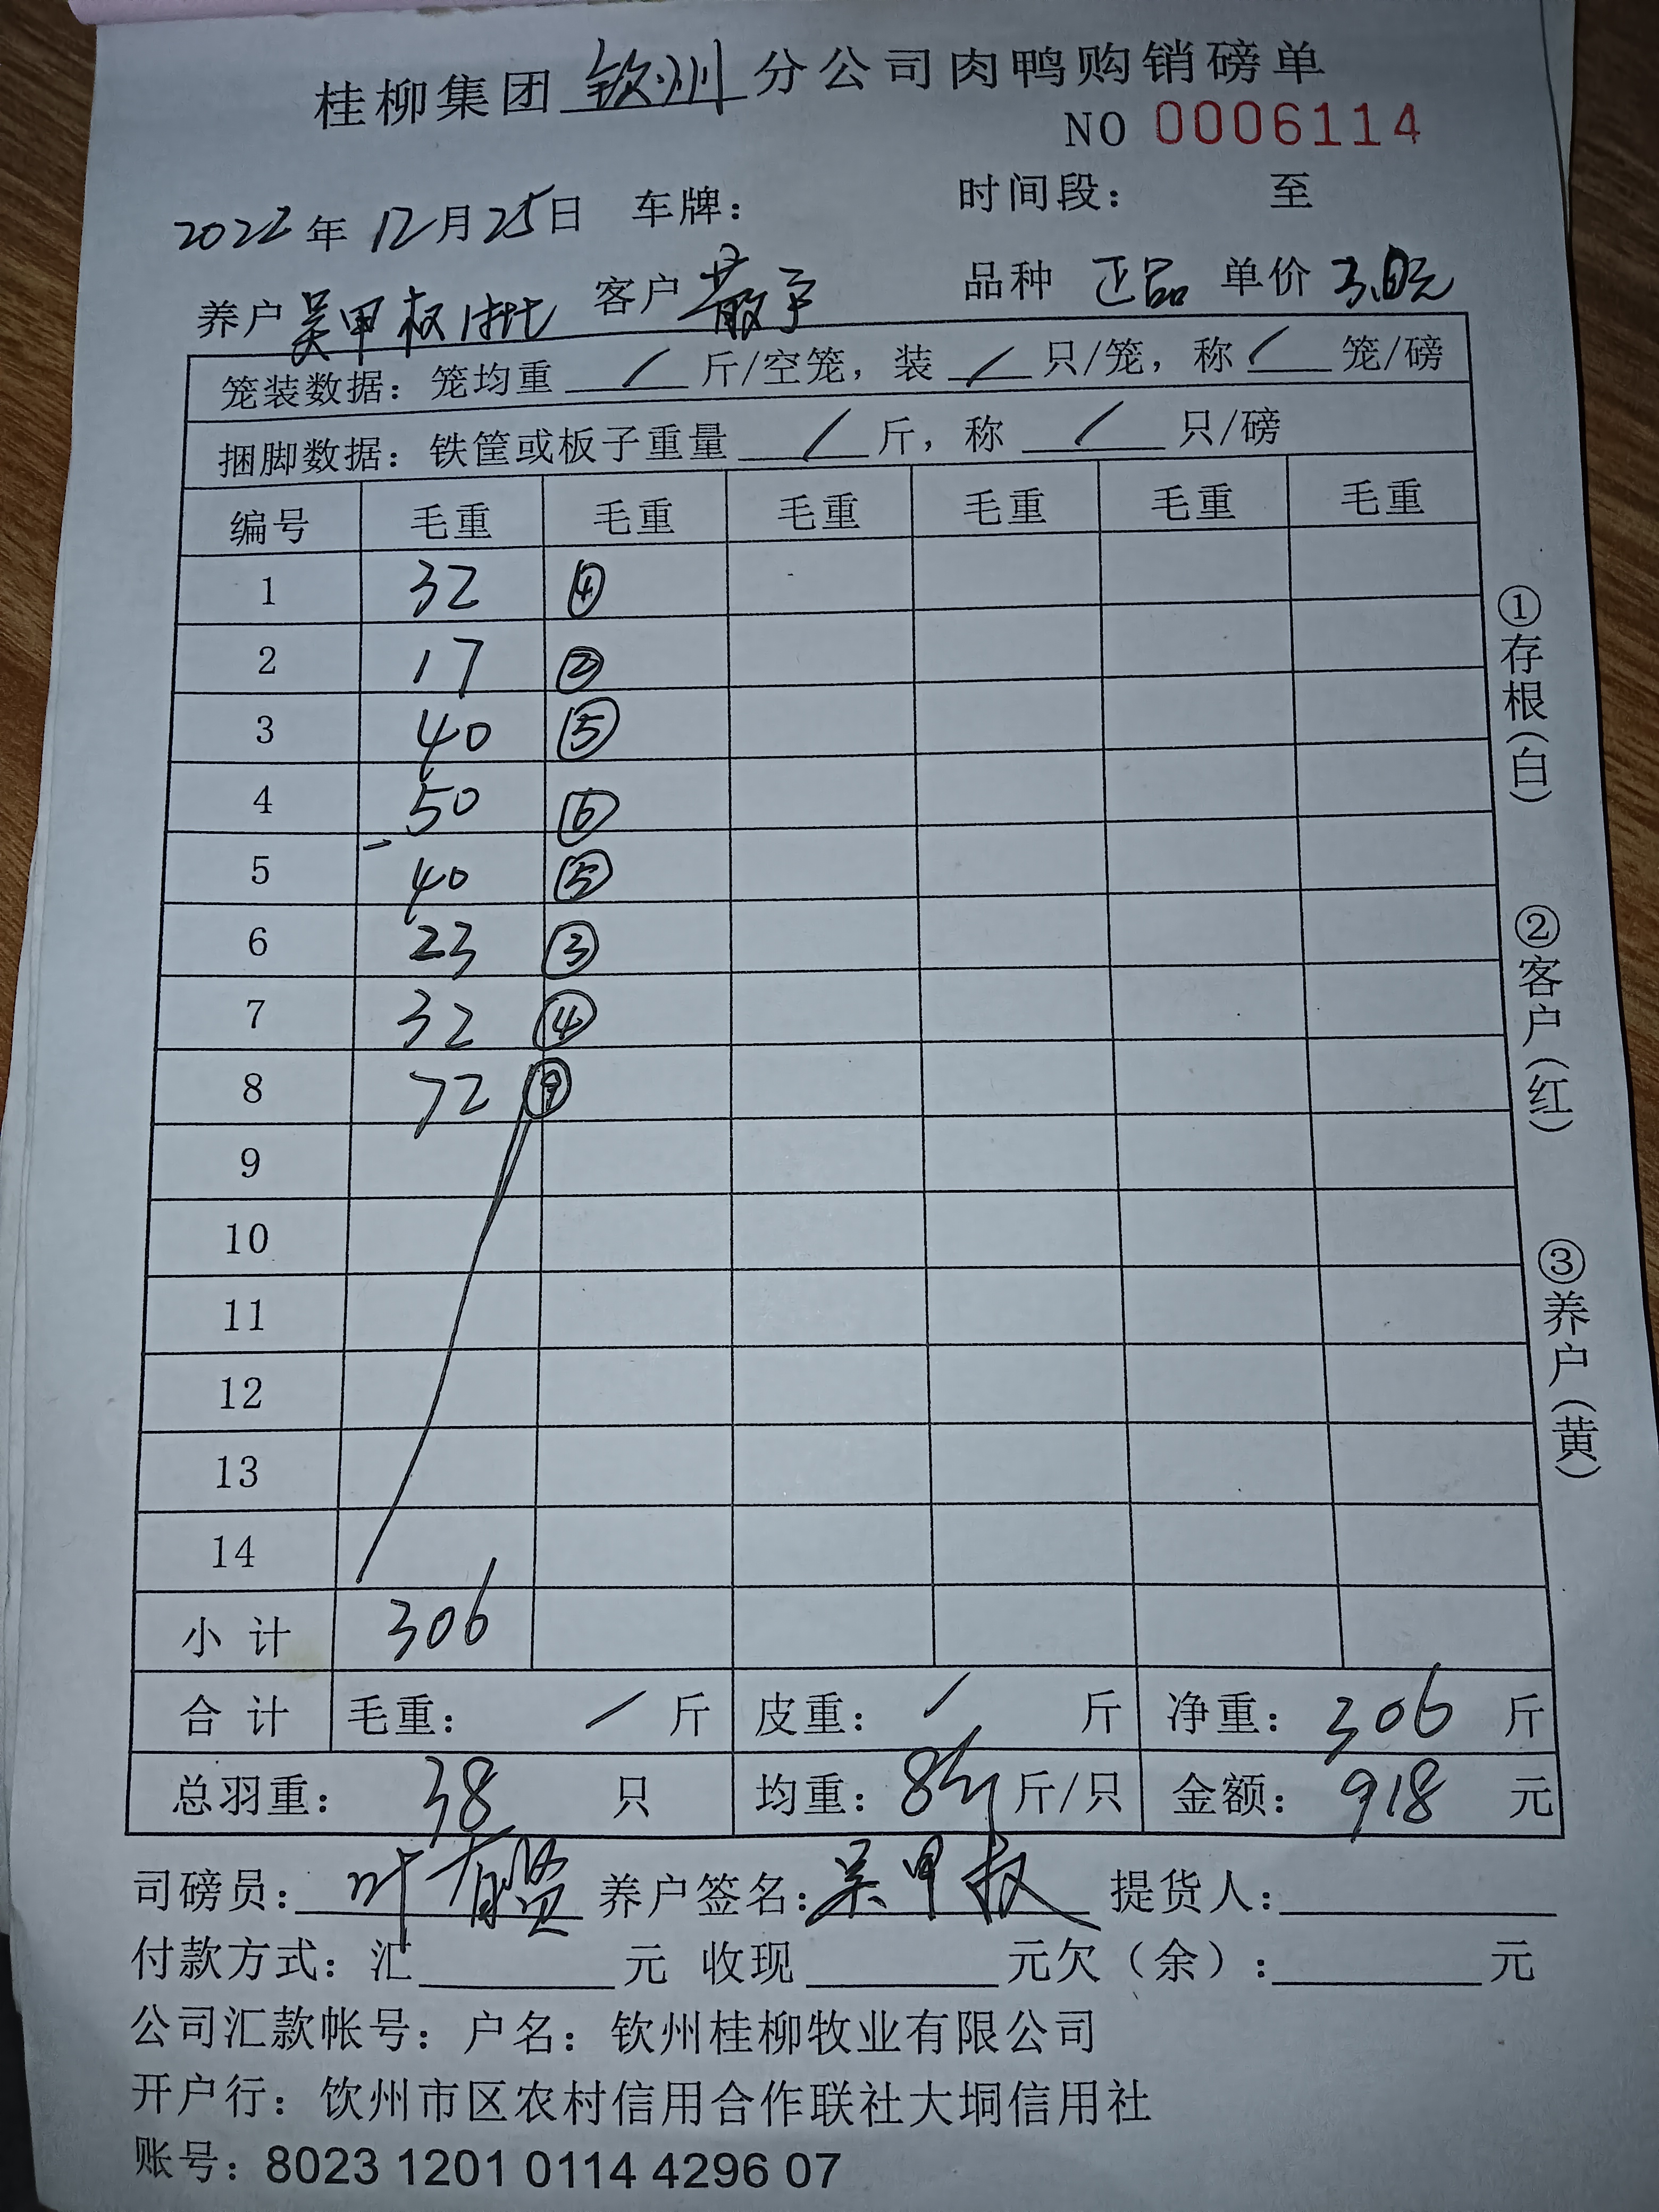 桂柳集团 钦州 分公司肉鸭购销磅单
NO 0006114
2022年 12月25日 车牌： 时间段： 至
养户 吴甲权1批 客户 散户 品种 正品 单价 3.0元
笼装数据：笼均重 / 斤/空笼，装 / 只/笼，称 / 笼/磅
捆脚数据：铁筐或板子重量 / 斤，称 / 只/磅
编号 毛重 毛重 毛重 毛重 毛重 毛重
1 32 ④
2 17 ②
3 40 ⑤
4 50 ⑥
5 40 ⑤
6 23 ③
7 32 ④
8 72 ⑨
9
10
11
12
13
14
小计 306
合计 毛重： / 斤 皮重： / 斤 净重： 306 斤
总羽重： 38 只 均重： 8斤 斤/只 金额： 918 元
司磅员： 叶有贤 养户签名： 吴甲权 提货人：
付款方式：汇 元 收现 元欠（余）： 元
公司汇款帐号：户名：钦州桂柳牧业有限公司
开户行：钦州市区农村信用合作联社大垌信用社
账号：8023 1201 0114 4296 07
①存根（白）
②客户（红）
③养户（黄）